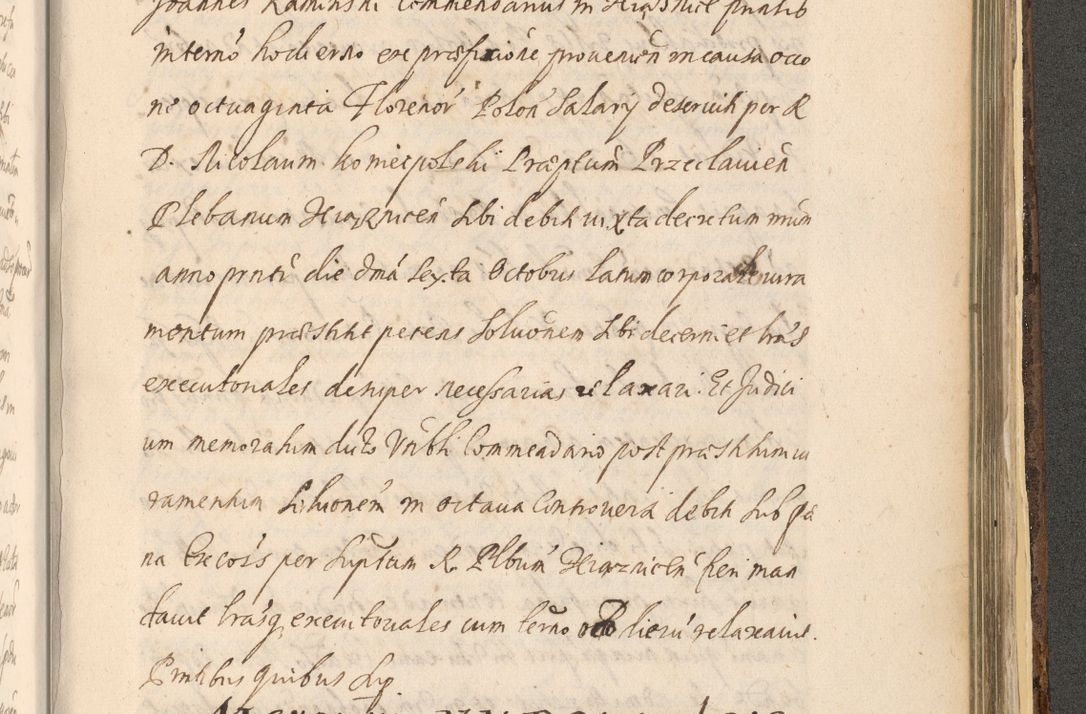 Joannes Kaminski Commendarius in Hiażnice pntib
interno hodierno ex præfixione provenien in causa occo
ne octuaginta Florenor Polon Salarij deserviti per R
D. Nicolaum Koniecpolski Præptum Przeclavien
Plebanum Hiażnicen sibi debit iuxta decretum nrum
anno prnti die dma sexta Octobris latum corporale iura
mentum præstitit petens Soluonem sibi decerni et lras
executoriales desuper necessarias relaxari. Et Judici
um memoratum dicto Vnbli Commendario post præstitum iu
ramentum Soluonem in octava Controversa debit sub pæ
na Excois per suptum R. Plbum Hiażnicen fieri man
davit lrasq executoriales cum termo octo dierum relaxavit.
Pntibus quibus sup